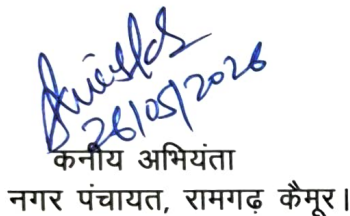 26/05/2026
कनीय अभियंता
नगर पंचायत, रामगढ़ कैमूर।